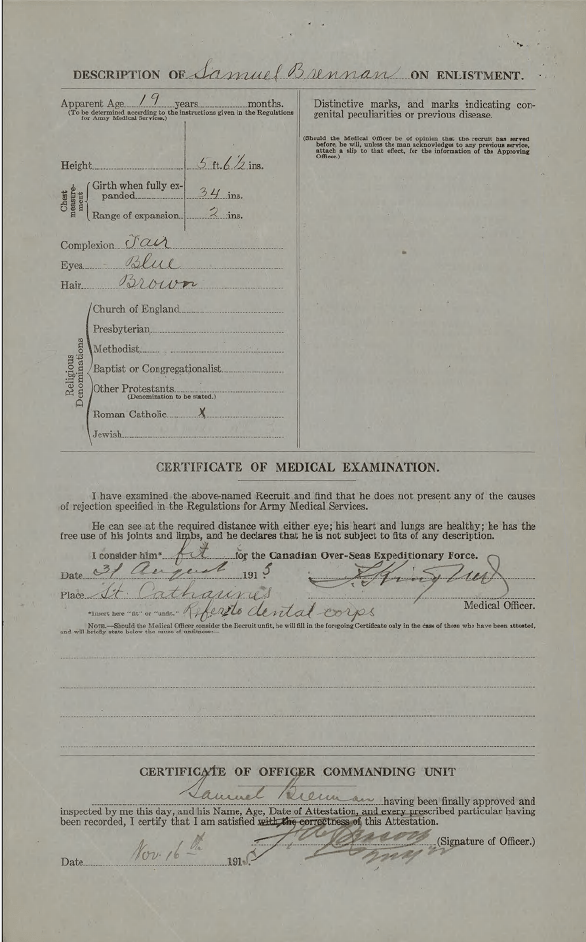 DESCRIPTION OF Samuel Brennan ON ENLISTMENT.
Apparent Age 19 years months.
(To be determined according to the instructions given in the Regulations
for Army Medical Services.)
Height 5 ft. 6½ ins.
Chest measure-ment
Girth when fully ex-
panded 34 ins.
Range of expansion 2 ins.
Complexion Fair
Eyes Blue
Hair Brown
Religious Denominations
Church of England
Presbyterian
Methodist
Baptist or Congregationalist
Other Protestants
(Denomination to be stated.)
Roman Catholic X
Jewish
Distinctive marks, and marks indicating con-
genital peculiarities or previous disease.
(Should the Medical Officer be of opinion that the recruit has served
before, he will, unless the man acknowledges to any previous service,
attach a slip to that effect, for the information of the Approving
Officer.)
CERTIFICATE OF MEDICAL EXAMINATION.
I have examined the above-named Recruit and find that he does not present any of the causes
of rejection specified in the Regulations for Army Medical Services.
He can see at the required distance with either eye; his heart and lungs are healthy; he has the
free use of his joints and limbs, and he declares that he is not subject to fits of any description.
I consider him* fit for the Canadian Over-Seas Expeditionary Force.
Date 31 August 1915
Place St. Catharines
Medical Officer.
*Insert here "fit" or "unfit." Refer to dental corps
NOTE.—Should the Medical Officer consider the Recruit unfit, he will fill in the foregoing Certificate only in the case of those who have been attested,
and will briefly state below the cause of unfitness:—
CERTIFICATE OF OFFICER COMMANDING UNIT
Samuel Brennan having been finally approved and
inspected by me this day, and his Name, Age, Date of Attestation, and every prescribed particular having
been recorded, I certify that I am satisfied with the correctness of this Attestation.
(Signature of Officer.)
Major
Date Nov 16th 1915